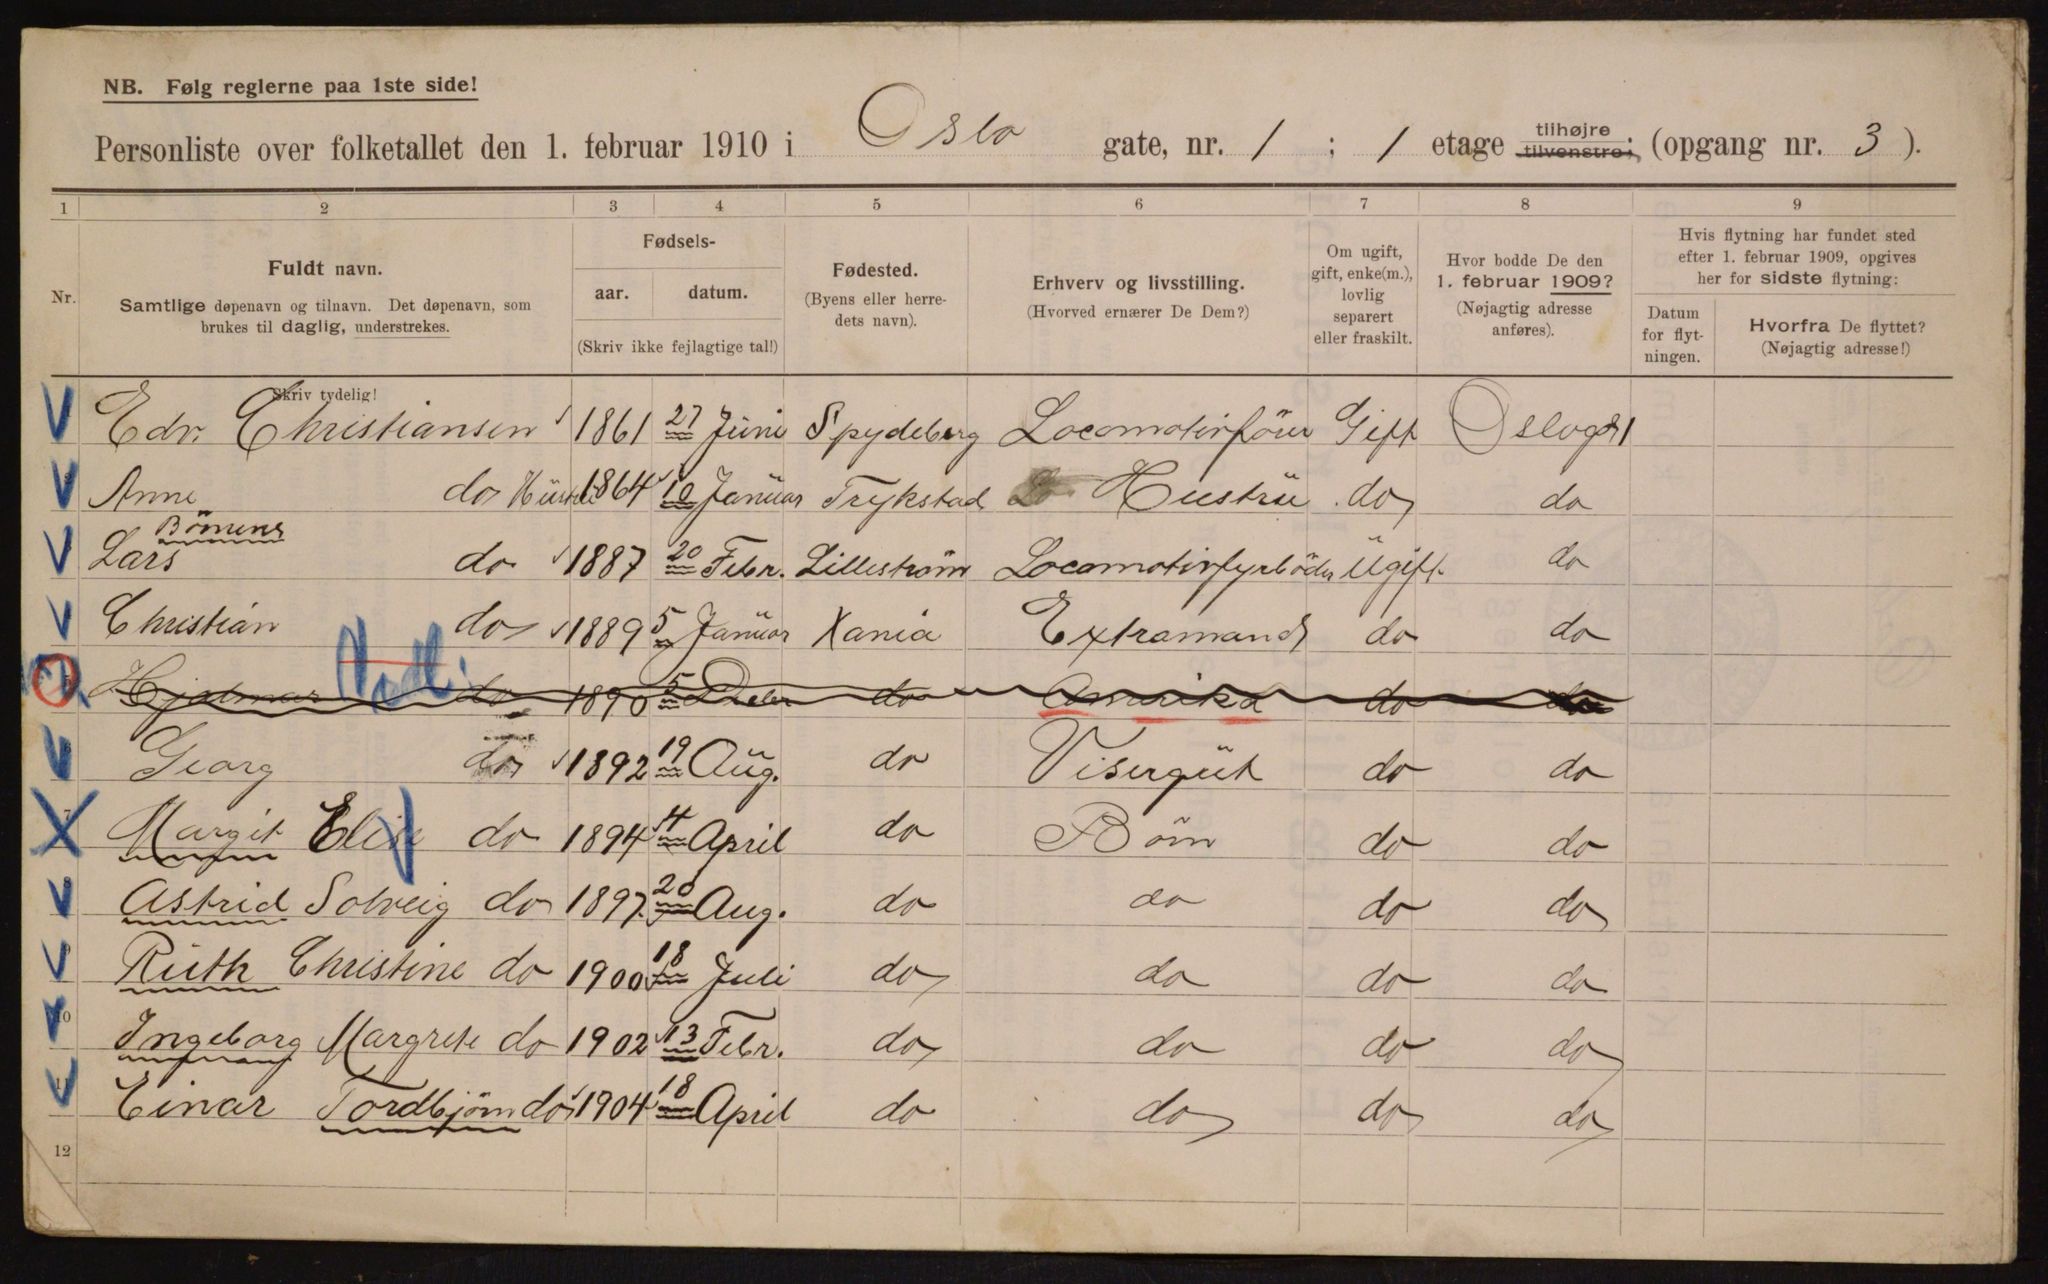 NB. Følg reglerne paa 1ste side!
Personliste over folketallet den 1. februar 1910 i Oslo gate, nr. 1 ; 1 etage tilhøjre tilvenstre; (opgang nr. 3 ).
1 2 3 4 5 6 7 8 9
Nr.
Fuldt navn.
Samtlige døpenavn og tilnavn. Det døpenavn, som
brukes til daglig, understrekes.
Skriv tydelig!
Fødsels-
aar. datum.
(Skriv ikke fejlagtige tal!)
Fødested.
(Byens eller herre-
dets navn).
Erhverv og livsstilling.
(Hvorved ernærer De Dem?)
Om ugift,
gift, enke(m.),
lovlig
separert
eller fraskilt.
Hvor bodde De den
1. februar 1909?
(Nøjagtig adresse
anføres).
Hvis flytning har fundet sted
efter 1. februar 1909, opgives
her for sidste flytning:
Datum
for flyt-
ningen.
Hvorfra De flyttet?
(Nøjagtig adresse!)
Edv. Christiansen 1861 27 Júni Spydeberg Locomotivförer Gift Oslogd 1
Anne do Hüstru 1864 10 Janüar Trykstad Hustrü do do
Börnene
Lars do 1887 20 Febr. Lilleström Locomotivfyrböder Ugift do
Christian do 1889 5 Janüar Xania Extramand do do
5 Hjalmar do 1890 5 do Amerika do do
6 Georg do 1892 19 Aüg. do Visergüt do do
7 Margit Elise do 1894 4 April do Börn do do
8 Astrid Solveig do 1897 20 Aug. do do do do
9 Rüth Christine do 1900 18 Juli do do do do
10 Ingeborg Margrete do 1902 13 Febr. do do do do
11 Einar Tordbjörn do 1904 18 April do do do do
12